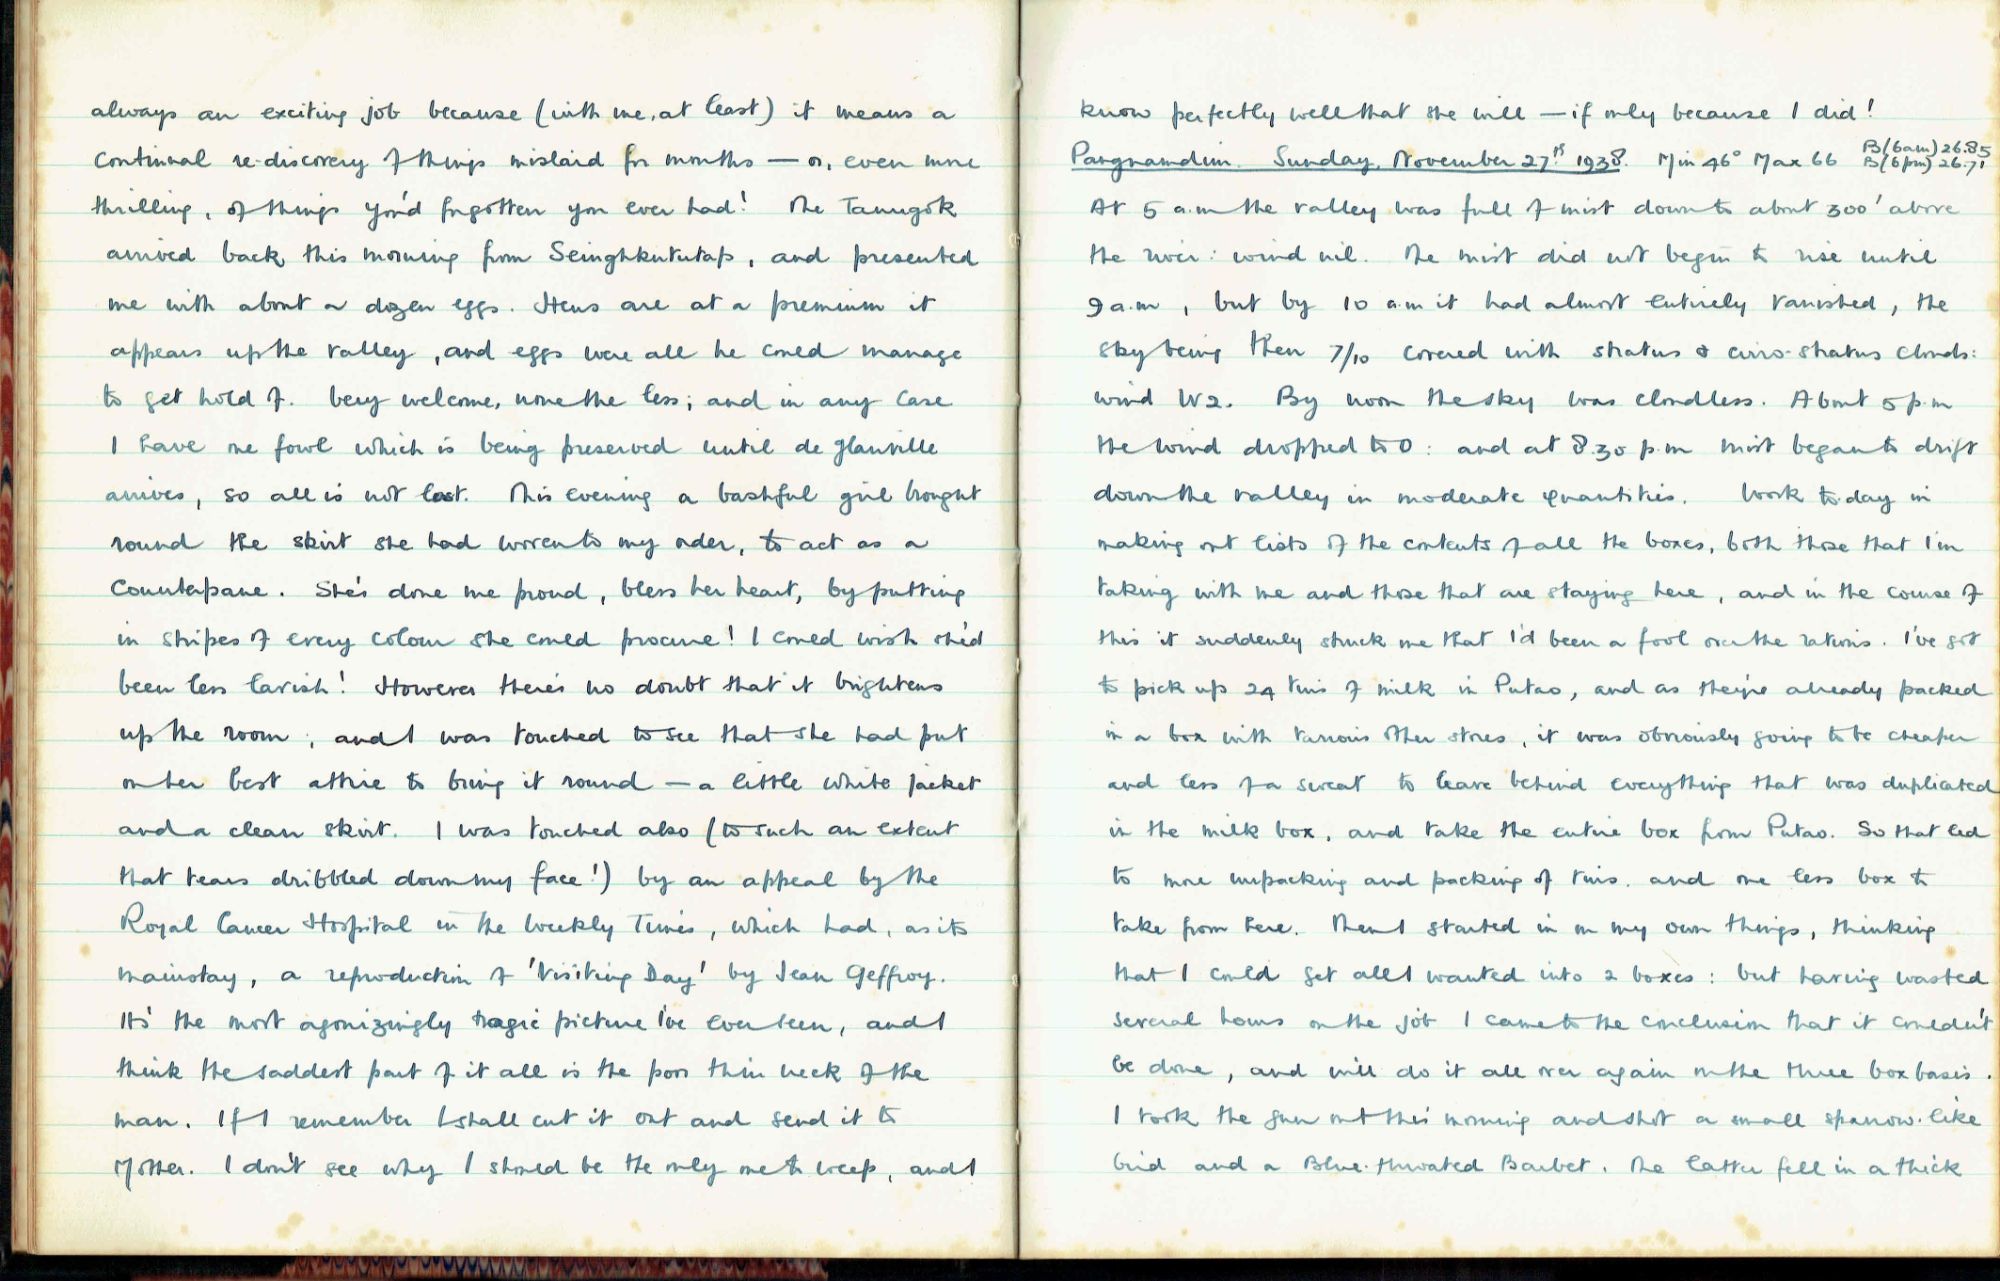 always an exciting job because (with me, at least) it means a
continual re-discovery of things mislaid for months — or, even more
thrilling, of things you'd forgotten you ever had! The Tamugok
arrived back this morning from Seinghkututap, and presented
me with about a dozen eggs. Hens are at a premium it
appears up the valley, and eggs were all he could manage
to get hold of. Very welcome, none the less; and in any case
I have one fowl which is being preserved until de Glanville
arrives, so all is not lost. This evening a bashful girl brought
round the skirt she had woven to my order, to act as a
counterpane. She's done me proud, bless her heart, by putting
in stripes of every colour she could procure! I could wish she'd
been less lavish! However there's no doubt that it brightens
up the room, and I was touched to see that she had put
on her best attire to bring it round — a little white jacket
and a clean skirt. I was touched also (to such an extent
that tears dribbled down my face!) by an appeal by the
Royal Cancer Hospital in the Weekly Times, which had, as its
mainstay, a reproduction of 'Visiting Day' by Jean Geffroy.
It's the most agonizingly tragic picture I've ever seen, and I
think the saddest part of it all is the poor thin neck of the
man. If I remember I shall cut it out and send it to
Mother. I don't see why I should be the only one to weep, and I
know perfectly well that she will — if only because I did!
Pangnamdim. Sunday, November 27th 1938. Min 46° Max 66 B(6am) 26.85
B(6pm) 26.71
At 5 a.m the valley was full of mist down to about 300' above
the river: wind nil. The mist did not begin to rise until
9 a.m, but by 10 a.m it had almost entirely vanished, the
sky being then 7/10 covered with stratus & cirro-stratus clouds:
wind W2. By noon the sky was cloudless. About 5 p.m
the wind dropped to 0: and at 8.30 p.m mist began to drift
down the valley in moderate quantities. Work to-day in
making out lists of the contents of all the boxes, both those that I'm
taking with me and those that are staying here, and in the course of
this it suddenly struck me that I'd been a fool over the rations. I've got
to pick up 24 tins of milk in Putao, and as they're already packed
in a box with various other stores, it was obviously going to be cheaper
and less of a sweat to leave behind everything that was duplicated
in the milk box, and take the entire box from Putao. So that led
to more unpacking and packing of tins. and one less box to
take from here. Then I started in on my own things, thinking
that I could get all I wanted into 2 boxes: but having wasted
several hours on the job I came to the conclusion that it couldn't
be done, and will do it all over again on the three box basis.
I took the gun out this morning and shot a small sparrow-like
bird and a Blue-throated Barbet. The latter fell in a thick